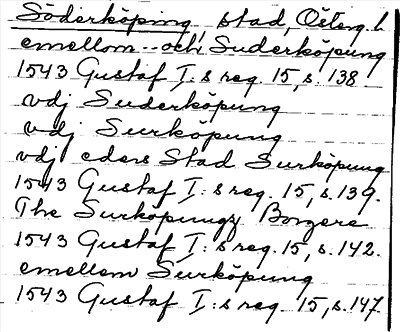 Söderköping, stad, Österg. l.
emellom -- och Suderköpung
1543 Gustaf I:s reg. 15, s. 138
vdj Suderköpung
vdj Surköpung
vdj eders Stad Surköpung
1543 Gustaf I:s reg. 15, s. 139.
The Surköpungz Borgere
1543 Gustaf I:s reg. 15, s. 142.
emellom Surköpung
1543 Gustaf I:s reg. 15, s. 147.